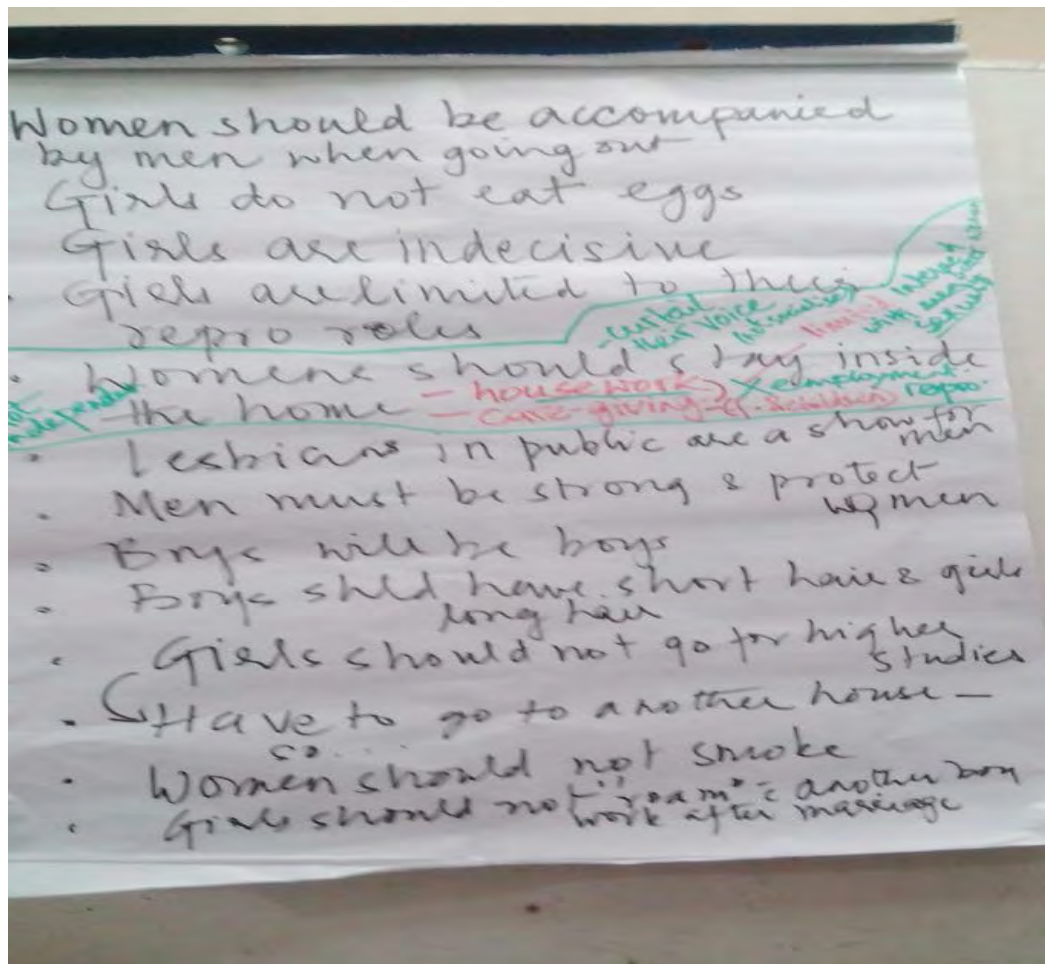 Women should be accompanied
by men when going out
Girls do not eat eggs
Girls are indecisive
· Girls are limited to their
repro roles
- curtail their voice
(not socialised)
limited
interact with
· Womens should stay inside
the home - housework
- care-giving
X employment
repro.
not independent
· Lesbians in public are a show for
men
· Men must be strong & protect
women
· Boys will be boys
· Boys shld have short hair & girls
long hair
· Girls should not go for higher
studies
· Have to go to another house –
so...
· Women should not smoke
· Girls should not "roam" c another boy
work after marriage